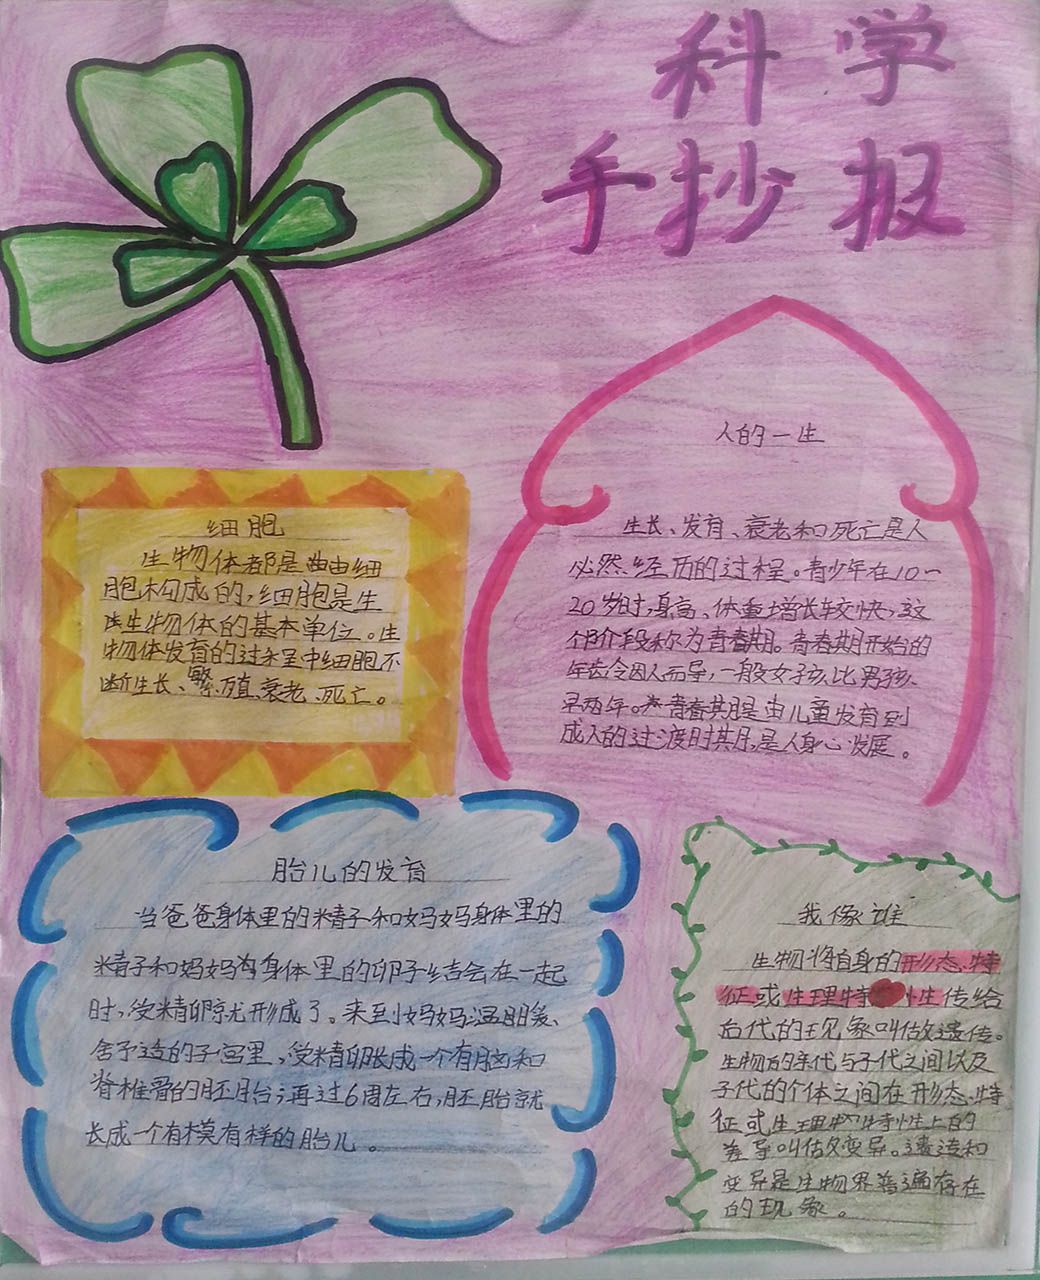 科学
手抄报
人的一生
生长、发育、衰老和死亡是人
必然经历的过程。青少年在10~
20岁时,身高、体重增长较快,这
个阶段称为青春期。青春期开始的
年龄令因人而异,一般女孩比男孩
早两年。青春期是由儿童发育到
成人的过渡时期,是人身心发展。
细胞
生物体都是由细
胞构成的,细胞是生
生物体的基本单位。生
物体发育的过程中细胞不
断生长、繁殖、衰老、死亡。
胎儿的发育
当爸爸身体里的精子和妈妈身体里的
精子和妈妈身体里的卵子结合在一起
时,受精卵就形成了。来到妈妈温暖、
舍予造的子宫里,受精卵长成一个有脑和
脊椎骨的胚胎;再过6周左右,胚胎就
长成一个有模有样的胎儿。
我像谁
生物将自身的形态、特
征或生理特性传给
后代的现象叫做遗传。
生物的亲代与子代之间以及
子代的个体之间在形态、特
征或生理特性上的
差异叫做变异。遗传和
变异是生物界普遍存在
的现象。